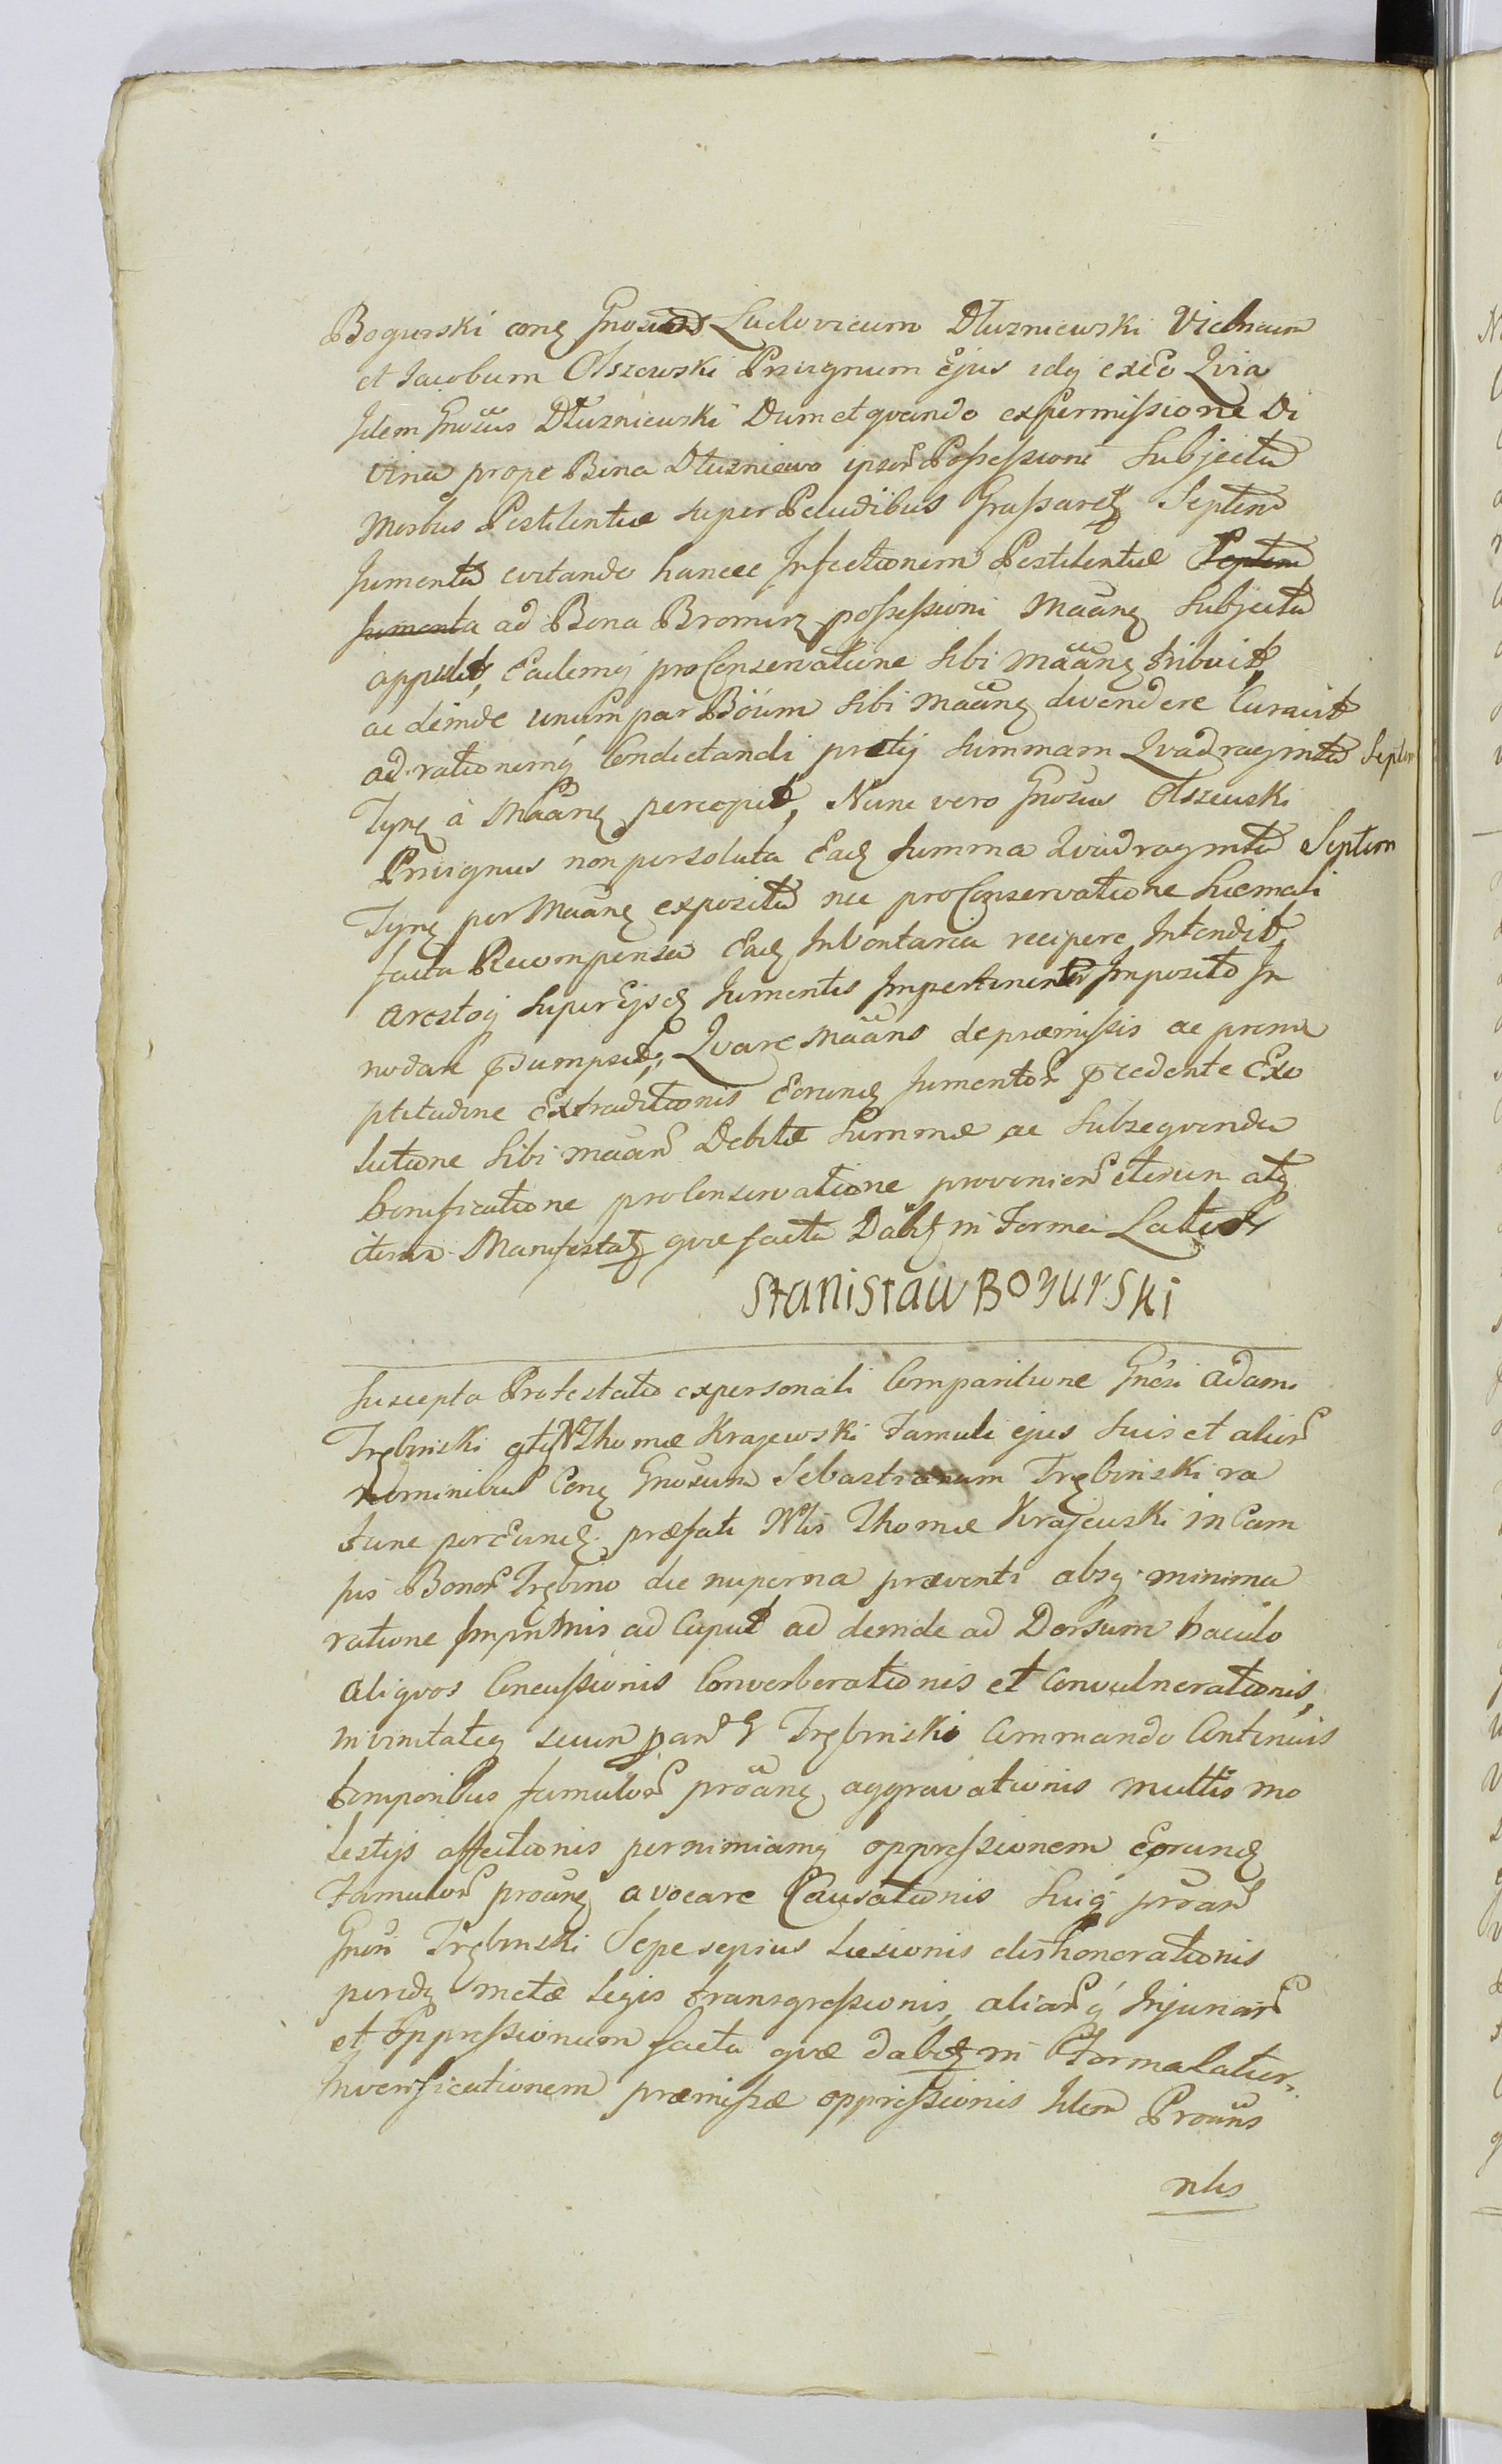 Bogurski conq Gnosum Ludovicum Dłuzniewski Vicinum
et Jacobum Olszewski Privignum Ejus idq exeo Qvia
Idem Gnosus Dłuzniewski Dum et qvando ex permissione Di
vina prope Bona Dłuzniewo ipsor Possessioni Subjecta
Morbus Pestilentiæ super Pecudibus Grassaretz Septem
Jumenta evitando hancce Infectionem Pestilentiæ Septem
Jumenta ad Bona Bromirz possessioni Maanq Subjecta
appulit, Eademq pro Conservatione sibi Määnq tribuit,
ac deinde unum par Boum sibi Määnq divendere Curavit
ad rationemq Condictandi pretij Summam Qvadraginta Septem
Tynq à Määnq percepit, Nunc vero Gnosus Olszewski
Privignus non persoluta Eadq Summa Qvadraginta Septem
Tynq per Määnq exposita nec pro Conservatione hiemali
facta Recompensa Eadq Inventaria recipere Intendit,
arestoq super Ejsdq Jumentis Impertinenter Imposito In
nodare Psumpsit, Qvare Määns de præmissis ac prom
ptitudine Extraditionis Eorundq Jumentor Pcedente Exo
lutione sibi Mään Debitæ Summæ ac Subseqvenda
bonificatione pro Conservatione provenien iterum atq
iterum Manifestatz qvæ facta Dabitz in Forma Latior
Stanisław Bogurski
Suscepta Protestatio ex personali Comparitione Gnosi Adami
Trębinski atq N Thomæ Krajewski Famuli ejus suis et alior
Nominibus Conq Gnosum Sebastianum Trębinski ra
tione per Eundq præfati Nlis Thomæ Krajewski in Cam
pis Bonor Trębino die nuperna præventi absq minima
ratione Imprimis ad Caput ac deinde ad Dorsum baculo
aliqvos Concussionis Converberationis et Convulnerationis,
G Trębinski Commando Continuis
temporibus famulor pröänq aggravationis multis mo
lestijs affectionis per nimiamq oppressionem Eorundq
Famulor pröänq avocare Causationis Suiq pröan
Gnosi Trębinski Sepe sepius Læsionis dishonorationis
peridq metæ Legis transgressionis, aliarq Injuriar
et Oppressionum facta qvæ dabitz in Forma Latior.
Inverificationem præmissæ oppressionis Idem Pröäns
nlis